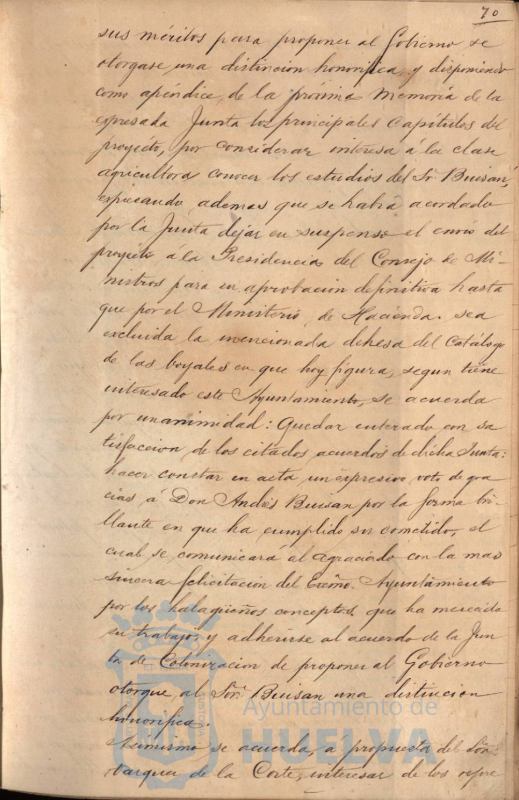 70
sus méritos para proponer al Gobierno se
otorgase una distincion honorifica, y disponiendo
como apéndice, de la próxima Memoria de la
expresada Junta los principales Capitulos del
proyecto, por considerar interesa á la clase
agricultora conocer los estudios del Sr. Buisan,
expresando ademas que se habia acordado
por la Junta dejar en suspenso el envio del
proyecto a la Presidencia del Consejo de Mi-
nistros para su aprobacion definitiva hasta
que por el Ministerio de Hacienda sea
excluida la mencionada dehesa del Catálogo
de las boyales en que hoy figura, segun tiene
interesado este Ayuntamiento, se acuerda
por unanimidad: Quedar enterado con sa
tisfaccion, de los citados acuerdos de dicha Junta:
hacer constar en acta un expresivo voto de gra
cias á Don Andrés Buisan por la forma bri-
llante en que ha cumplido su cometido, el
cual se comunicará al agraciado con la mas
sincera felicitación del Excmo. Ayuntamiento
por los halagüeños conceptos, que ha merecido
su trabajo; y adherirse al acuerdo de la Jun
ta de Colonizacion de proponer al Gobierno
otorgue al Sor. Buisan una distincion
honorifica.
Asimismo se acuerda, á propuesta del Sor.
de la Corte, interesar de los repre
Ayuntamiento de
HUELVA